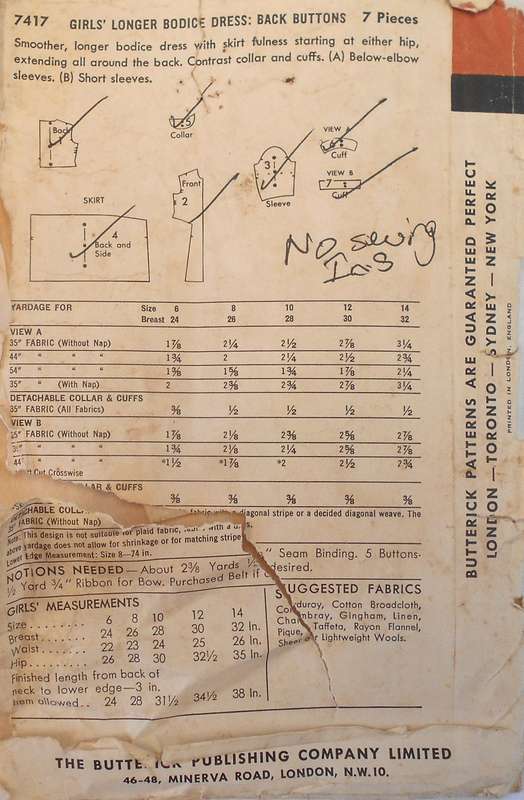 7417 GIRLS' LONGER BODICE DRESS: BACK BUTTONS 7 Pieces
Smoother, longer bodice dress with skirt fulness starting at either hip,
extending all around the back. Contrast collar and cuffs. (A) Below-elbow
sleeves. (B) Short sleeves.
Back
1
5
Collar
VIEW A
6
Cuff
3
Sleeve
VIEW B
7
Cuff
Front
2
SKIRT
4
Back and
Side
No sewing
Ins
YARDAGE FOR Size 6 8 10 12 14
Breast 24 26 28 30 32
VIEW A
35" FABRIC (Without Nap) 1⅞ 2¼ 2½ 2⅞ 3¼
44" " " " 1¾ 2 2¼ 2½ 2¾
54" " " " 1⅜ 1⅝ 1¾ 1⅞ 2¼
35" " (With Nap) 2 2⅜ 2¾ 2⅞ 3¼
DETACHABLE COLLAR & CUFFS
35" FABRIC (All Fabrics) ⅜ ½ ½ ½ ½
VIEW B
35" FABRIC (Without Nap) 1⅞ 2⅛ 2⅜ 2⅝ 2⅞
" " " 1¾ 2⅛ 2¼ 2⅝ 2⅞
44" " " *1½ *1⅞ *2 2½ 2¾
Cut Crosswise
LAR & CUFFS
⅜ ⅜ ⅜ ⅜ ⅜
CHABLE COLL
FABRIC (Without Nap) fabric with a diagonal stripe or a decided diagonal weave. The
Note: This design is not suitable for plaid fabric, with a
above yardage does not allow for shrinkage or for matching stripe
Lower Edge Measurement: Size 8—74 in.
NOTIONS NEEDED—About 2⅜ Yards ½" Seam Binding. 5 Buttons-
½ Yard ¾" Ribbon for Bow. Purchased Belt if desired.
GIRLS' MEASUREMENTS
Size 6 8 10 12 14
Breast 24 26 28 30 32 In.
Waist 22 23 24 25 26 In.
Hip 26 28 30 32½ 35 In.
Finished length from back of
neck to lower edge—3 in.
hem allowed 24 28 31½ 34½ 38 In.
SUGGESTED FABRICS
Corduroy, Cotton Broadcloth,
Chambray, Gingham, Linen,
Pique, Taffeta, Rayon Flannel,
Sheer or Lightweight Wools.
THE BUTTERICK PUBLISHING COMPANY LIMITED
46-48, MINERVA ROAD, LONDON, N.W.10.
BUTTERICK PATTERNS ARE GUARANTEED PERFECT
LONDON — TORONTO — SYDNEY — NEW YORK
PRINTED IN LONDON, ENGLAND